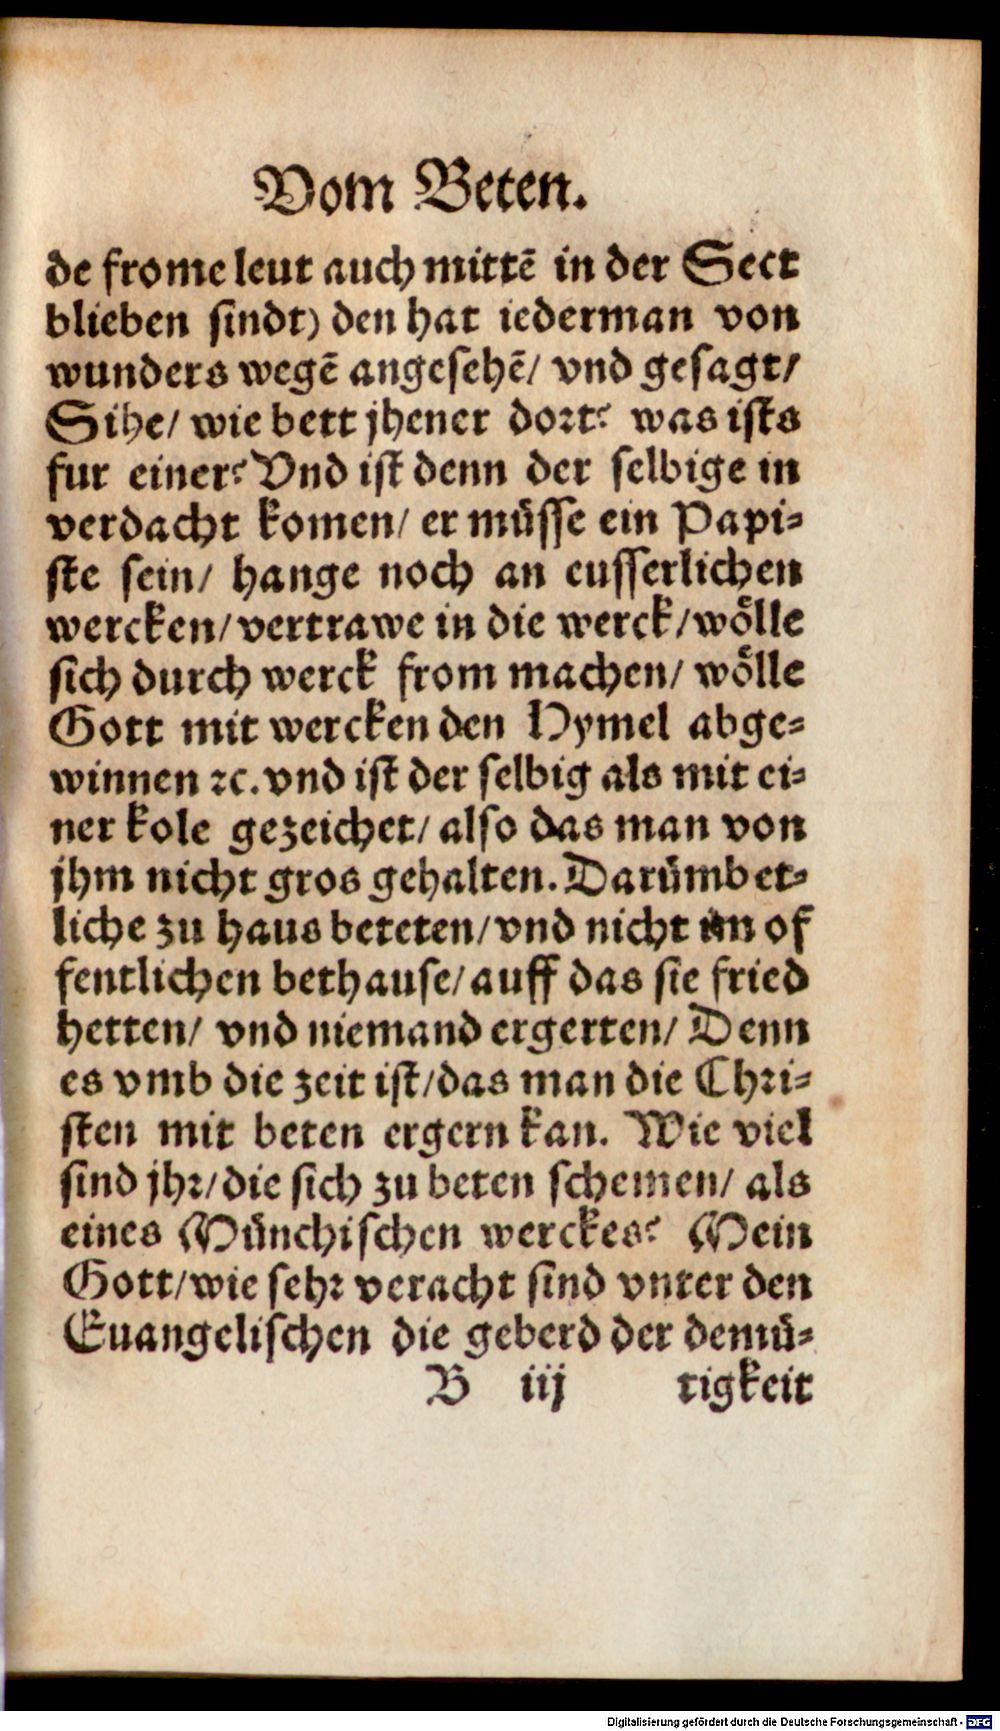 Vom Beten.
de frome leut auch mittē in der Sect
blieben sindt) den hat iederman von
wunders wegē angesehē/ vnd gesagt/
Sihe/ wie bett jhener dort? was ists
fur einer? Vnd ist denn der selbige in
verdacht komen/ er müsse ein Papi-
ste sein/ hange noch an eusserlichen
wercken/ vertrawe in die werck/ wölle
sich durch werck from machen/ wölle
Gott mit wercken den Hymel abge-
winnen ꝛc. vnd ist der selbig als mit ei-
ner kole gezeichet/ also das man von
jhm nicht gros gehalten. Darümb et-
liche zu haus beteten/ vnd nicht im of
fentlichen bethause/ auff das sie fried
hetten/ vnd niemand ergerten/ Denn
es vmb die zeit ist/ das man die Chri-
sten mit beten ergern kan. Wie viel
sind jhr/ die sich zu beten schemen/ als
eines Münchischen werckes? Mein
Gott/ wie sehr veracht sind vnter den
Euangelischen die geberd der demü-
B iij tigkeit
Digitalisierung gefördert durch die Deutsche Forschungsgemeinschaft - DFG